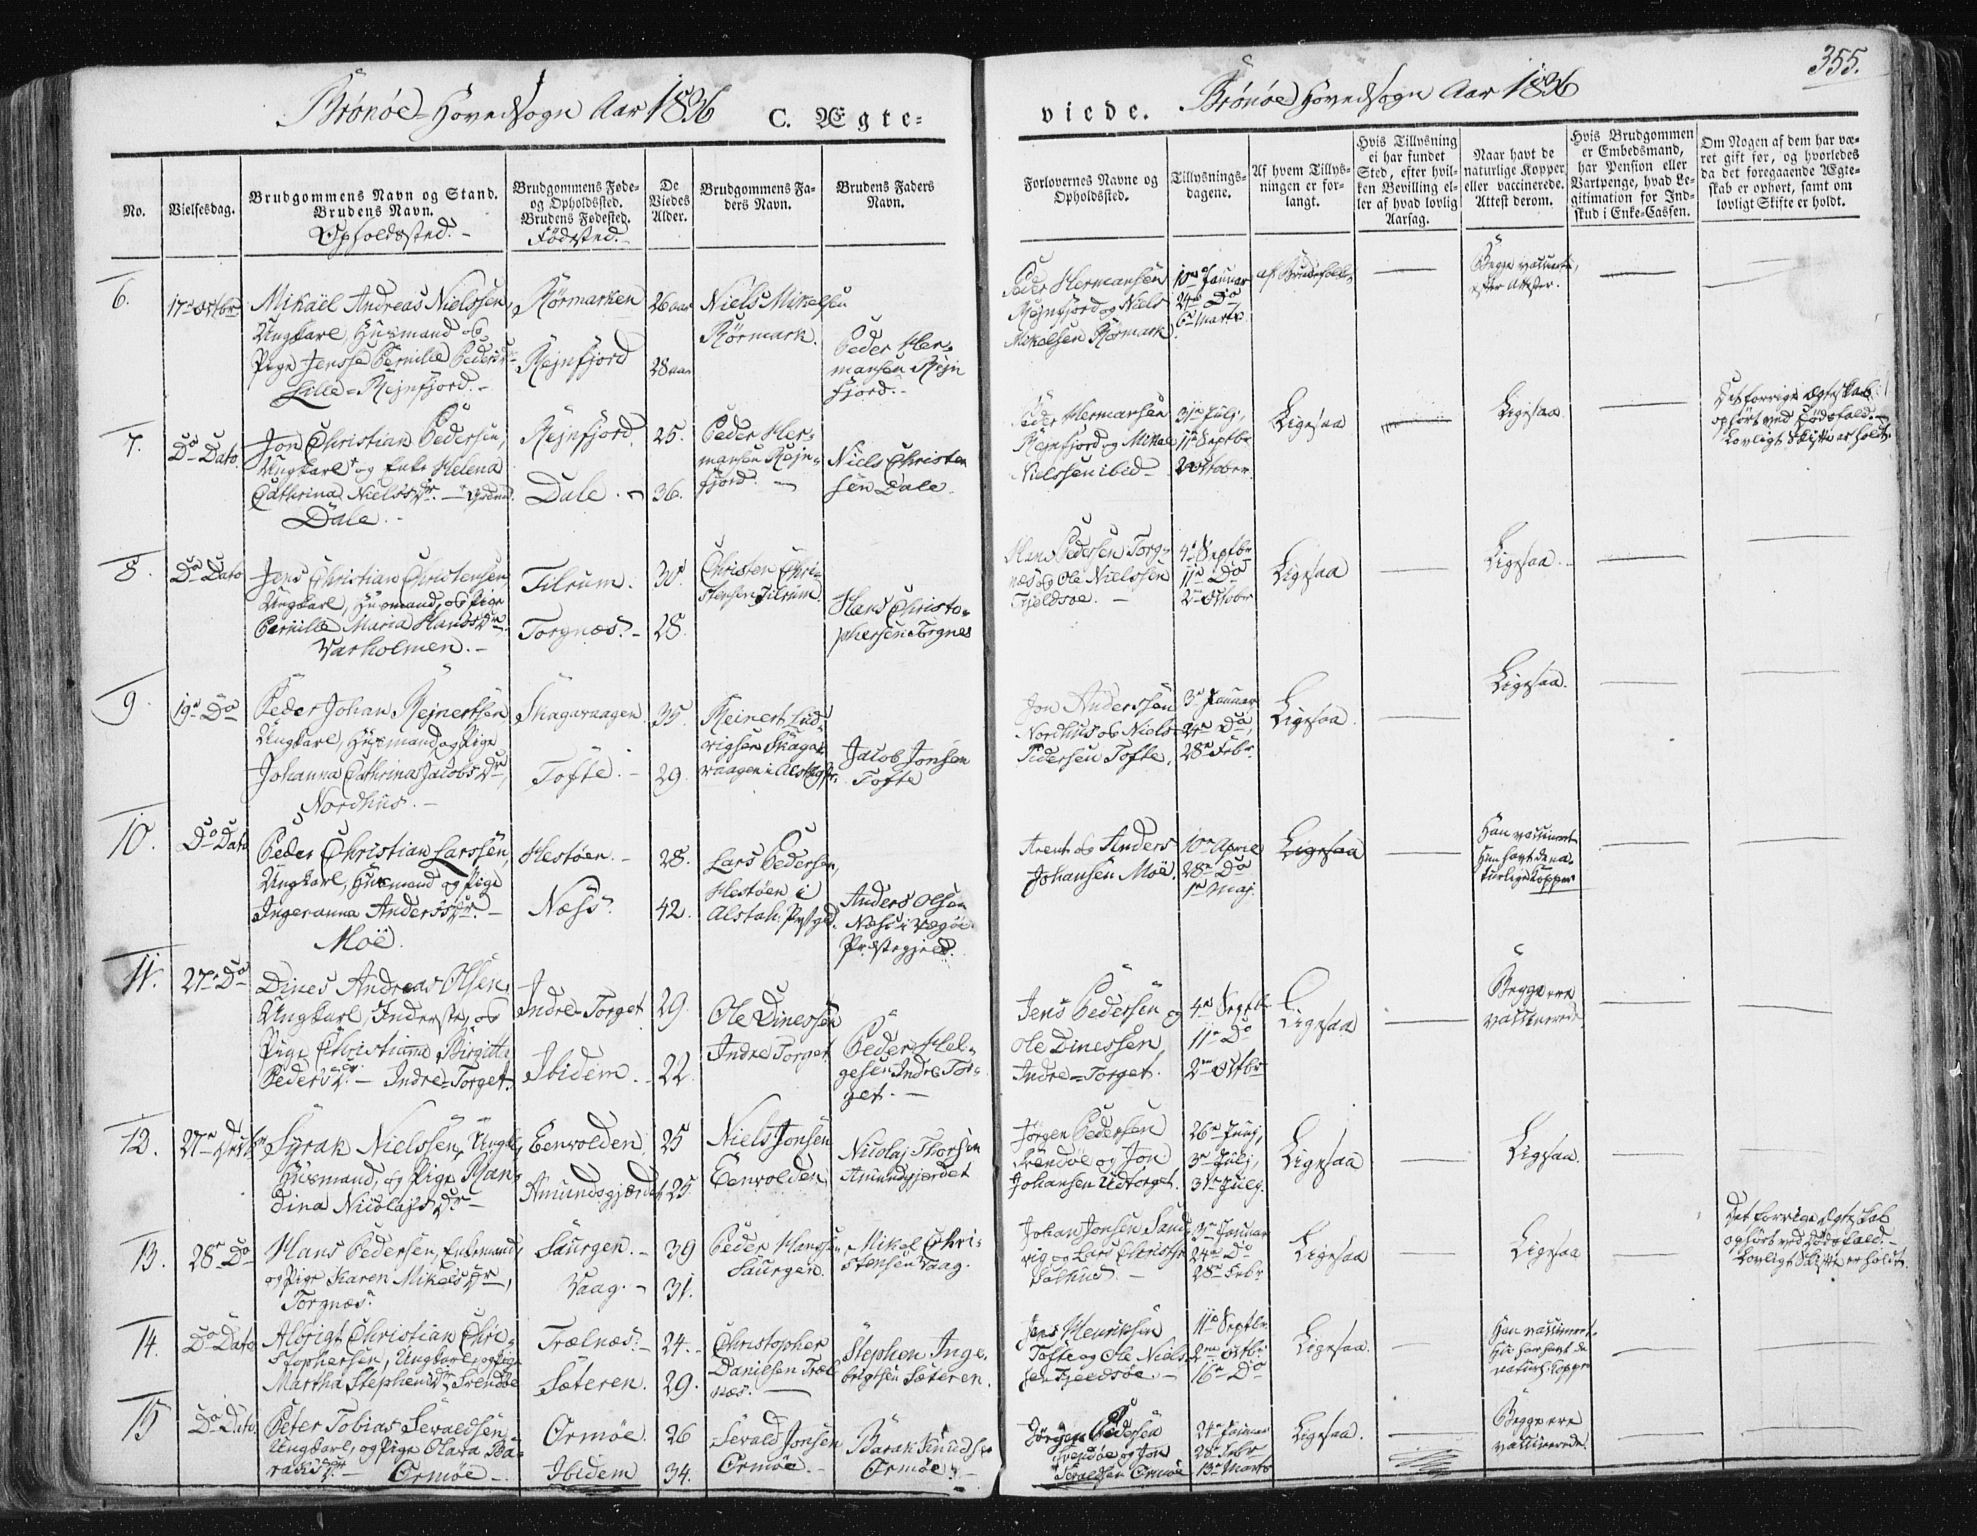 355.
Brönöe Hovedsogn Aar 1836 C. Ægte-
viede. Brönöe Hovedsogn Aar 1836
No.
Vielsesdag.
Brudgommens Navn og Stand.
Brudens Navn.
Opholdssted.
Brudgommens Føde-
og Opholdssted.
Brudens Fødested.
Fødested.
De
Viedes
Alder.
Brudgommens Fa-
ders Navn.
Brudens Faders
Navn.
Forlovernes Navne og
Opholdssted.
Tillysnings-
dagene.
Af hvem Tillys-
ningen er for-
langt.
Hvis Tillysning
ei har fundet
Sted, efter hvil-
ken Bevilling el-
ler af hvad lovlig
Aarsag.
Naar havt de
naturlige Kopper,
eller vaccinerede.
Attest derom.
Hvis Brudgommen
er Embedsmand,
har Pension eller
Vartpenge, hvad Le-
gitimation for Ind-
skud i Enke-Cassen.
Om Nogen af dem har væ-
ret gift før, og hvorledes
da det foregaaende Ægte-
skab er ophørt, samt om
lovligt Skifte er holdt.
6.
17de Octbr
Mikael Andreas Nielssen,
Ungkarl, Husmand og
Pige Jensse Pernille Peders Dr
Lille-Rejnfjord.
Rörmarken
Rejnfjord
26 aar
28 aar
Niels Mikelsen
Rörmark.
Peder Her-
mansen Rejn
fjord.
Peder Hermansen
Rejnfjord og Niels
Mikelsen Rörmark.
10de Januar
24de Do
6te Marts
af Brudefolkene
Begge vaccinerte,
efter Attester.
7.
Do Dato.
Jon Christian Pedersen,
Ungkarl og Enke Helena
Cathrina Niels Dr.
Dale.
Rejnfjord.
Dale.
25.
36.
Peder Her-
mansen Rejn-
fjord.
Niels Christen
sen Dale.
Peder Hermansen
Rejnfjord og Mikal
Nielssen ibid
31te Julj,
11te Septbr
2 October
Ligesaa
Ligesaa.
Det forrige Ægteskab
ophört ved Dödsfald.
Lovligt Skifte er holdt.
8.
Do Dato
Jens Christian Christensen
Ungkarl, Husmand, og Pige
Pernille Maria Hans Dr
Varholmen.
Tilrum.
Torgnæs.
30.
28.
Christen Chri-
stensen Tilrum.
Hans Christo-
phersen Torgnes
Hans Pedersen Torg-
næs og Ole Nielssen
Tjeldsoe.
4de Septbr
11te Do
2den Octobr
Ligesaa
Ligesaa.
9.
19de Do
Peder Johan Rejnertsen
Ungkarl, Husmand og Pige
Johanna Cathrina Jacobs Dr,
Nordhus.
Skagavaagen.
Tofte.
35.
29.
Reinert Lud-
vigsen Skaga-
vaagen i Alstah.
Jacob Jonsen
Tofte
Jon Anderssen
Nordhus og Niels
Pedersen Tofte.
3de Januar
24de Do,
28de Febr
Ligesaa.
Ligesaa.
10.
Do Dato
Peder Christian Larssen,
Ungkarl, Husmand og Pige
Ingeranna Anders Dr.
Moe.
Hestöen.
Næss.
28.
42.
Lars Pedersen,
Hestöen i
Alstah. Prstgd.
Anders Olsen
Næss i Vegöe
Præstegjeld.
Arent og Anders
Johansen Moe.
10de April
28de Do
1te Maj.
Ligesaa
Han vaccinert
Hun havt de na-
turlige Kopper
11.
27de Do
Dines Andreas Olsen,
Ungkarl, Inderste, og
Pige Christiana Birgitte
Peders Dr. Indre-Torget.
Indre-Torget
Ibidem.
29.
22.
Ole Dinessen
Indre Torget
Peder Hel-
gesen Indre Tor-
get.
Jens Pedersen og
Ole Dinessen
Indre-Torget.
4de Septbr
11te Do
2den Octbr
Ligesaa
Begge ere
vaccinerede
12.
27de Decbr
Syrak Nielssen, Ungk.,
Husmand, og Pige Man-
dina Nicolajs Dr
Eenvolden
Amundsgjærdet
25
25.
Niels Jonsen
Eenvolden
Nicolaj Thorsen
Amundgjerdet
Jörgen Pedersen
Svendöe og Jon
Johansen Udtorget.
26de Junj,
3de Julj,
31te Julj.
Ligesaa
Ligesaa.
13.
28de Do
Hans Pedersen, Enkemand
og Pige Karen Mikels Dr,
Torgnæs.
Saurgen.
Vaag.
39
31.
Peder Hansen
Saurgen.
Mikel Chri-
stensen Vaag.
Johan Jonsen Sand-
vig og Lars Christs.
3de Januar
24de Do
28de Febr
Ligesaa
Ligesaa
Det forrige Ægteskab
ophört ved Dödsfald.
Lovligt Skifte er holdt.
14.
Do Dato
Albrigt Christian Chri-
stophersen, Ungkarl, og Pige
Martha Stephens Dr Svendöe
Trælnæs.
Sæteren.
24.
29.
Christopher
Danielsen Træl
næs.
Stephen Inge-
brigtsen Sæteren.
Jens Henriksen
Tofte og Ole Niels-
sen Tjeldsöe.
11te Septbr.
2den Octbr
16de Do
Ligesaa.
Han vaccinert.
Hun har havt de
naturl. Kopper
15
Do Dato.
Peter Tobias Sevaldsen,
Ungkarl, og Pige Olava Ba-
raks Dr Ormöe
Ormöe
Ibidem
26
34.
Sevald Jonsen
Ormöe.
Barak Knudse
Ormöe.
Jörgen Pedersen
Svendöe og Jon
Sevaldsen Ormöe
24de Januar
28de Febr
13de Marts
Ligesaa.
Begge ere
vaccinerede.